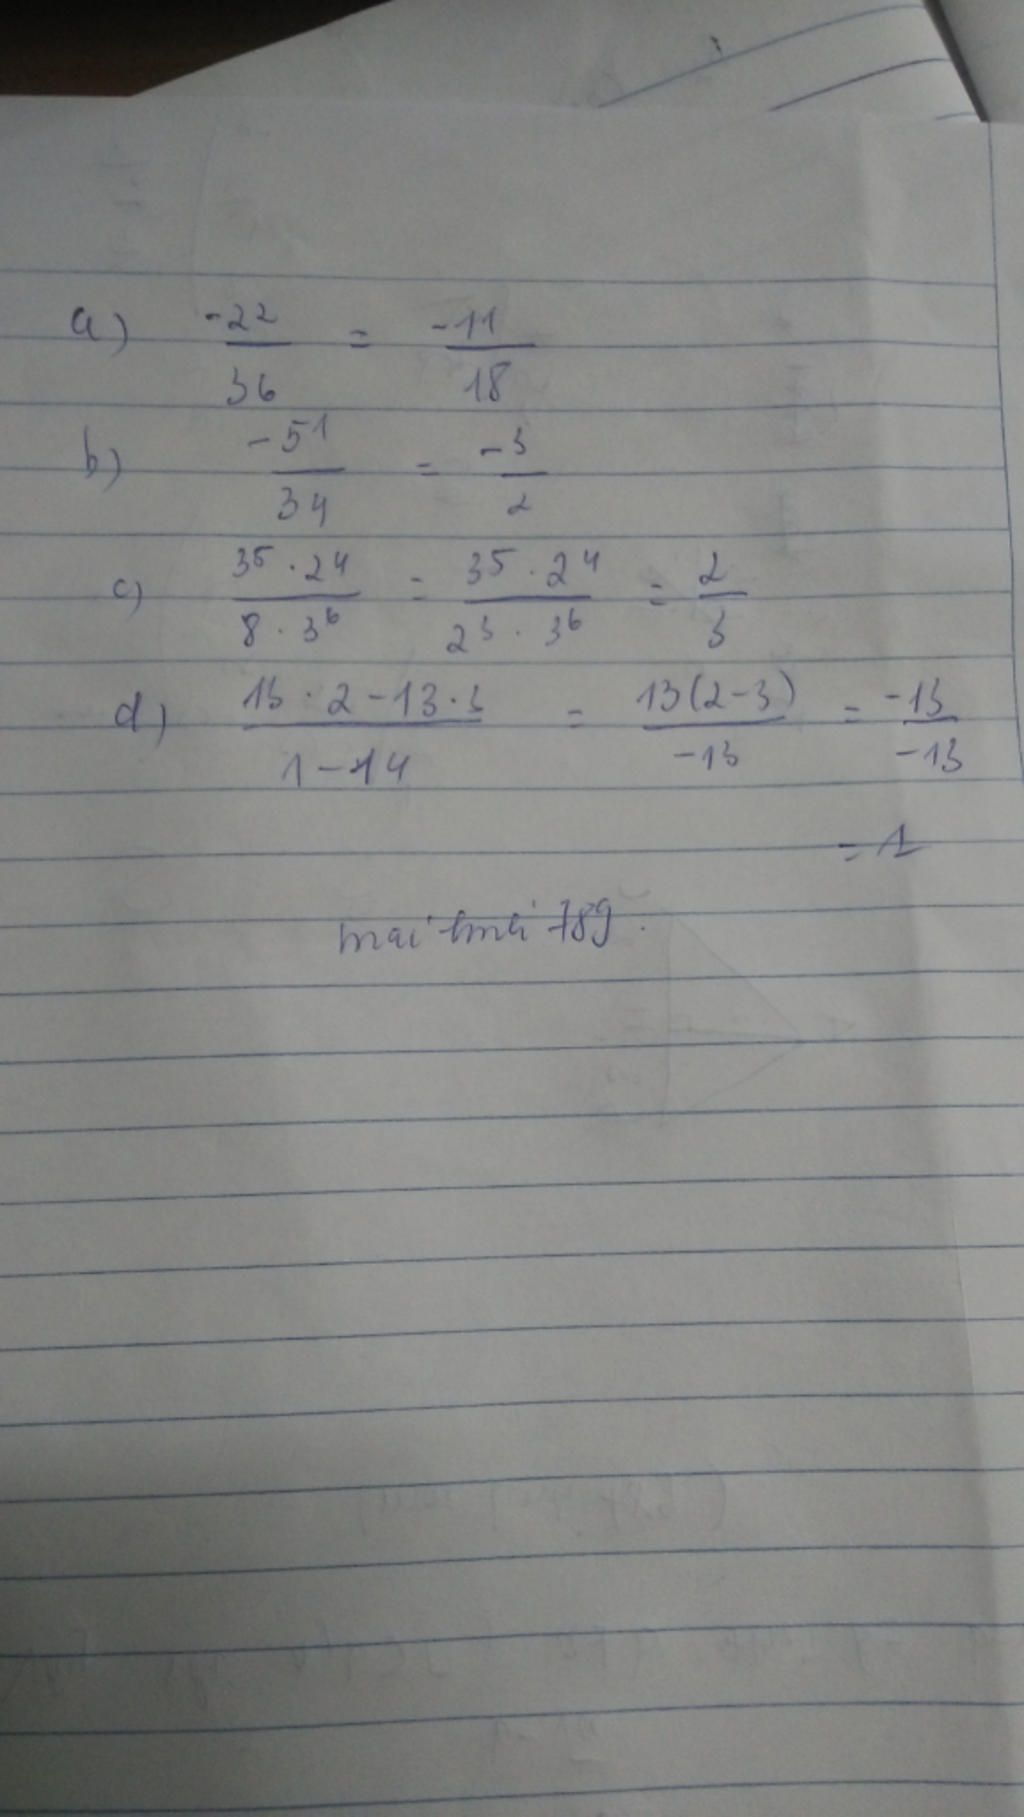 a) -22/36 = -11/18
b) -51/34 = -3/2
c) 3⁵ · 2⁴ / 8 · 3⁶ = 3⁵ · 2⁴ / 2³ · 3⁶ = 2/3
d) 13 · 2 - 13 · 3 / 1 - 14 = 13(2-3) / -13 = -13/-13
= 1
mai mai 789.